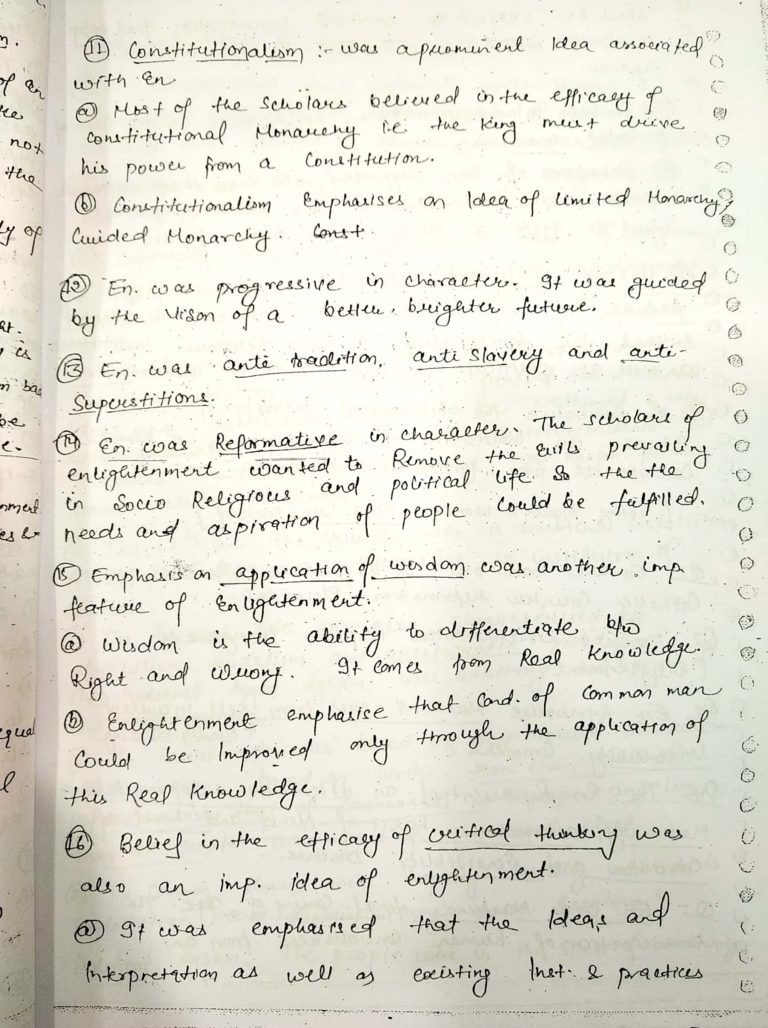 n.
of an
not
the
ty of
is
be
e.
equal
(11) Constitutionalism :- was a prominent Idea associated
with En
(a) Most of the Scholars believed in the efficacy of
constitutional Monarchy i.e the King must drive
his power from a Constitution.
(b) Constitutionalism Emphasises on Idea of Limited Monarchy,
Guided Monarchy. Const
(12) En. was progressive in character. It was guided
by the Vison of a better, brighter future.
(13) En. was ante tradition, anti slavery and anti-
Superstitions.
(14) En. was Reformative in character. The scholars of
enlightenment wanted to Remove the Evils prevailing
in Socio Religious and political life so the the
needs and aspiration of people could be fulfilled.
(15) Emphasis on application of wisdom was another imp
feature of Enlightenment.
(a) Wisdom is the ability to differentiate b/w
Right and Wrong. It comes from Real Knowledge.
(b) Enlightenment emphasise that cond. of common man
could be Improved only through the application of
this Real Knowledge.
(16) Belief in the efficacy of critical thinking was
also an imp. idea of enlightenment.
(a) It was emphasised that the Ideas and
Interpretation as well as existing Inst. & practices